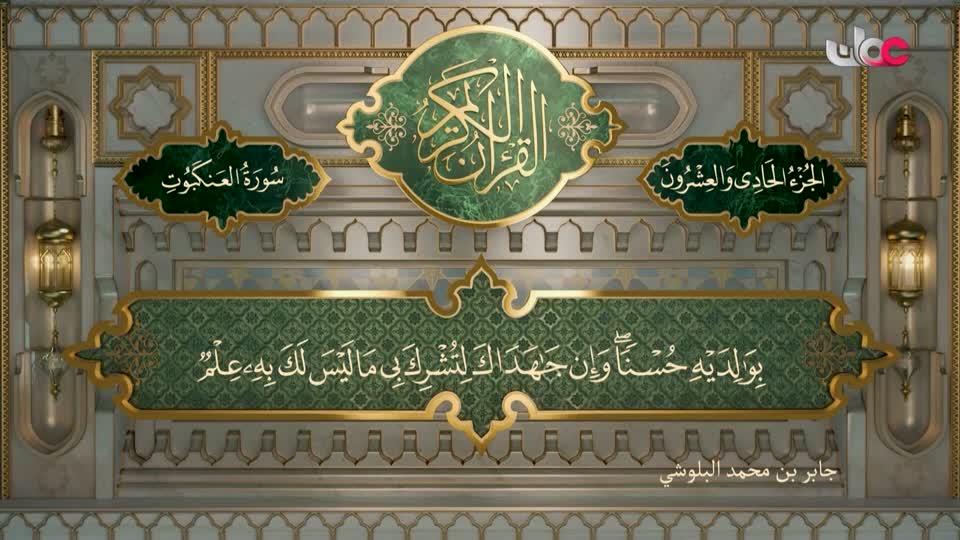 عمان
القرءان الكريم
الجُزْءُ الحَادِي وَالعِشْرُونَ
سُورَةُ العَنكَبُوتِ
بِوَٰلِدَيْهِ حُسْنًاۖ وَإِن جَٰهَدَاكَ لِتُشْرِكَ بِي مَا لَيْسَ لَكَ بِهِۦ عِلْمٌ
جابر بن محمد البلوشي